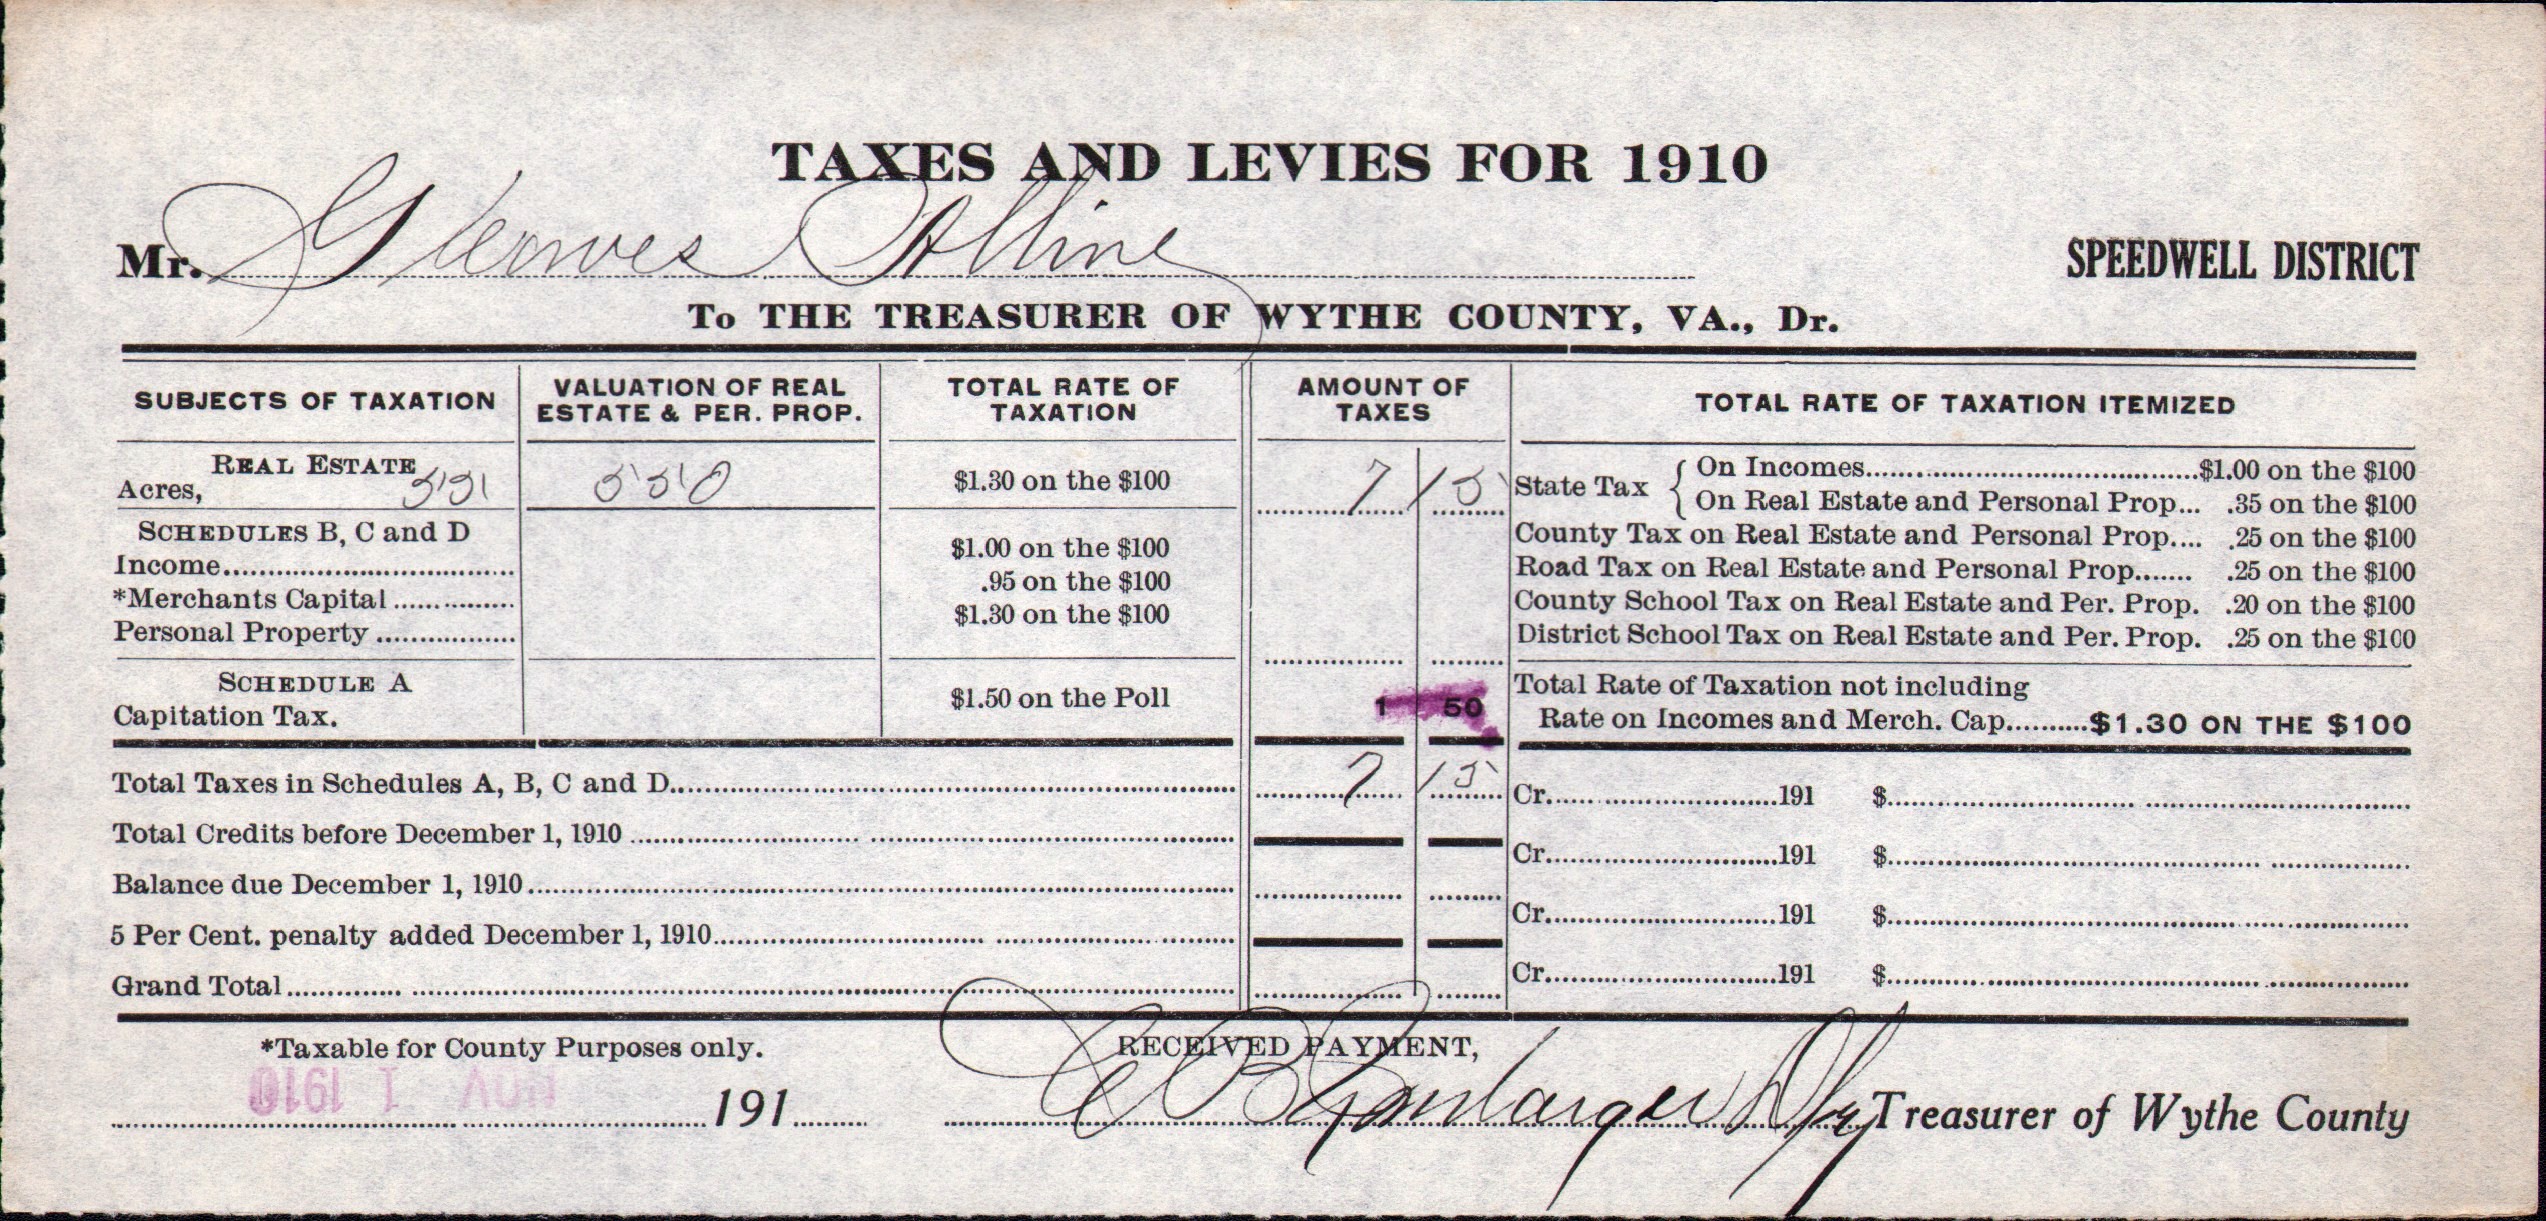 TAXES AND LEVIES FOR 1910
Mr. Gleaves Alline
SPEEDWELL DISTRICT
To THE TREASURER OF WYTHE COUNTY, VA., Dr.
SUBJECTS OF TAXATION
VALUATION OF REAL ESTATE & PER. PROP.
TOTAL RATE OF TAXATION
AMOUNT OF TAXES
TOTAL RATE OF TAXATION ITEMIZED
REAL ESTATE
Acres, 551 550 $1.30 on the $100 7 15
SCHEDULES B, C and D
Income.................................... $1.00 on the $100
*Merchants Capital ............... .95 on the $100
Personal Property ................. $1.30 on the $100
SCHEDULE A
Capitation Tax. $1.50 on the Poll 1 50
State Tax { On Incomes..........................................$1.00 on the $100
On Real Estate and Personal Prop... .35 on the $100
County Tax on Real Estate and Personal Prop.... .25 on the $100
Road Tax on Real Estate and Personal Prop....... .25 on the $100
County School Tax on Real Estate and Per. Prop. .20 on the $100
District School Tax on Real Estate and Per. Prop. .25 on the $100
Total Rate of Taxation not including
Rate on Incomes and Merch. Cap..........$1.30 ON THE $100
Total Taxes in Schedules A, B, C and D.................... 7 15
Total Credits before December 1, 1910 ....................
Balance due December 1, 1910....................
5 Per Cent. penalty added December 1, 1910....................
Grand Total....................
Cr.............................191 $....................
Cr.............................191 $....................
Cr.............................191 $....................
Cr.............................191 $....................
*Taxable for County Purposes only.
RECEIVED PAYMENT,
NOV 1 1910
....................191.........
C B Treasurer of Wythe County